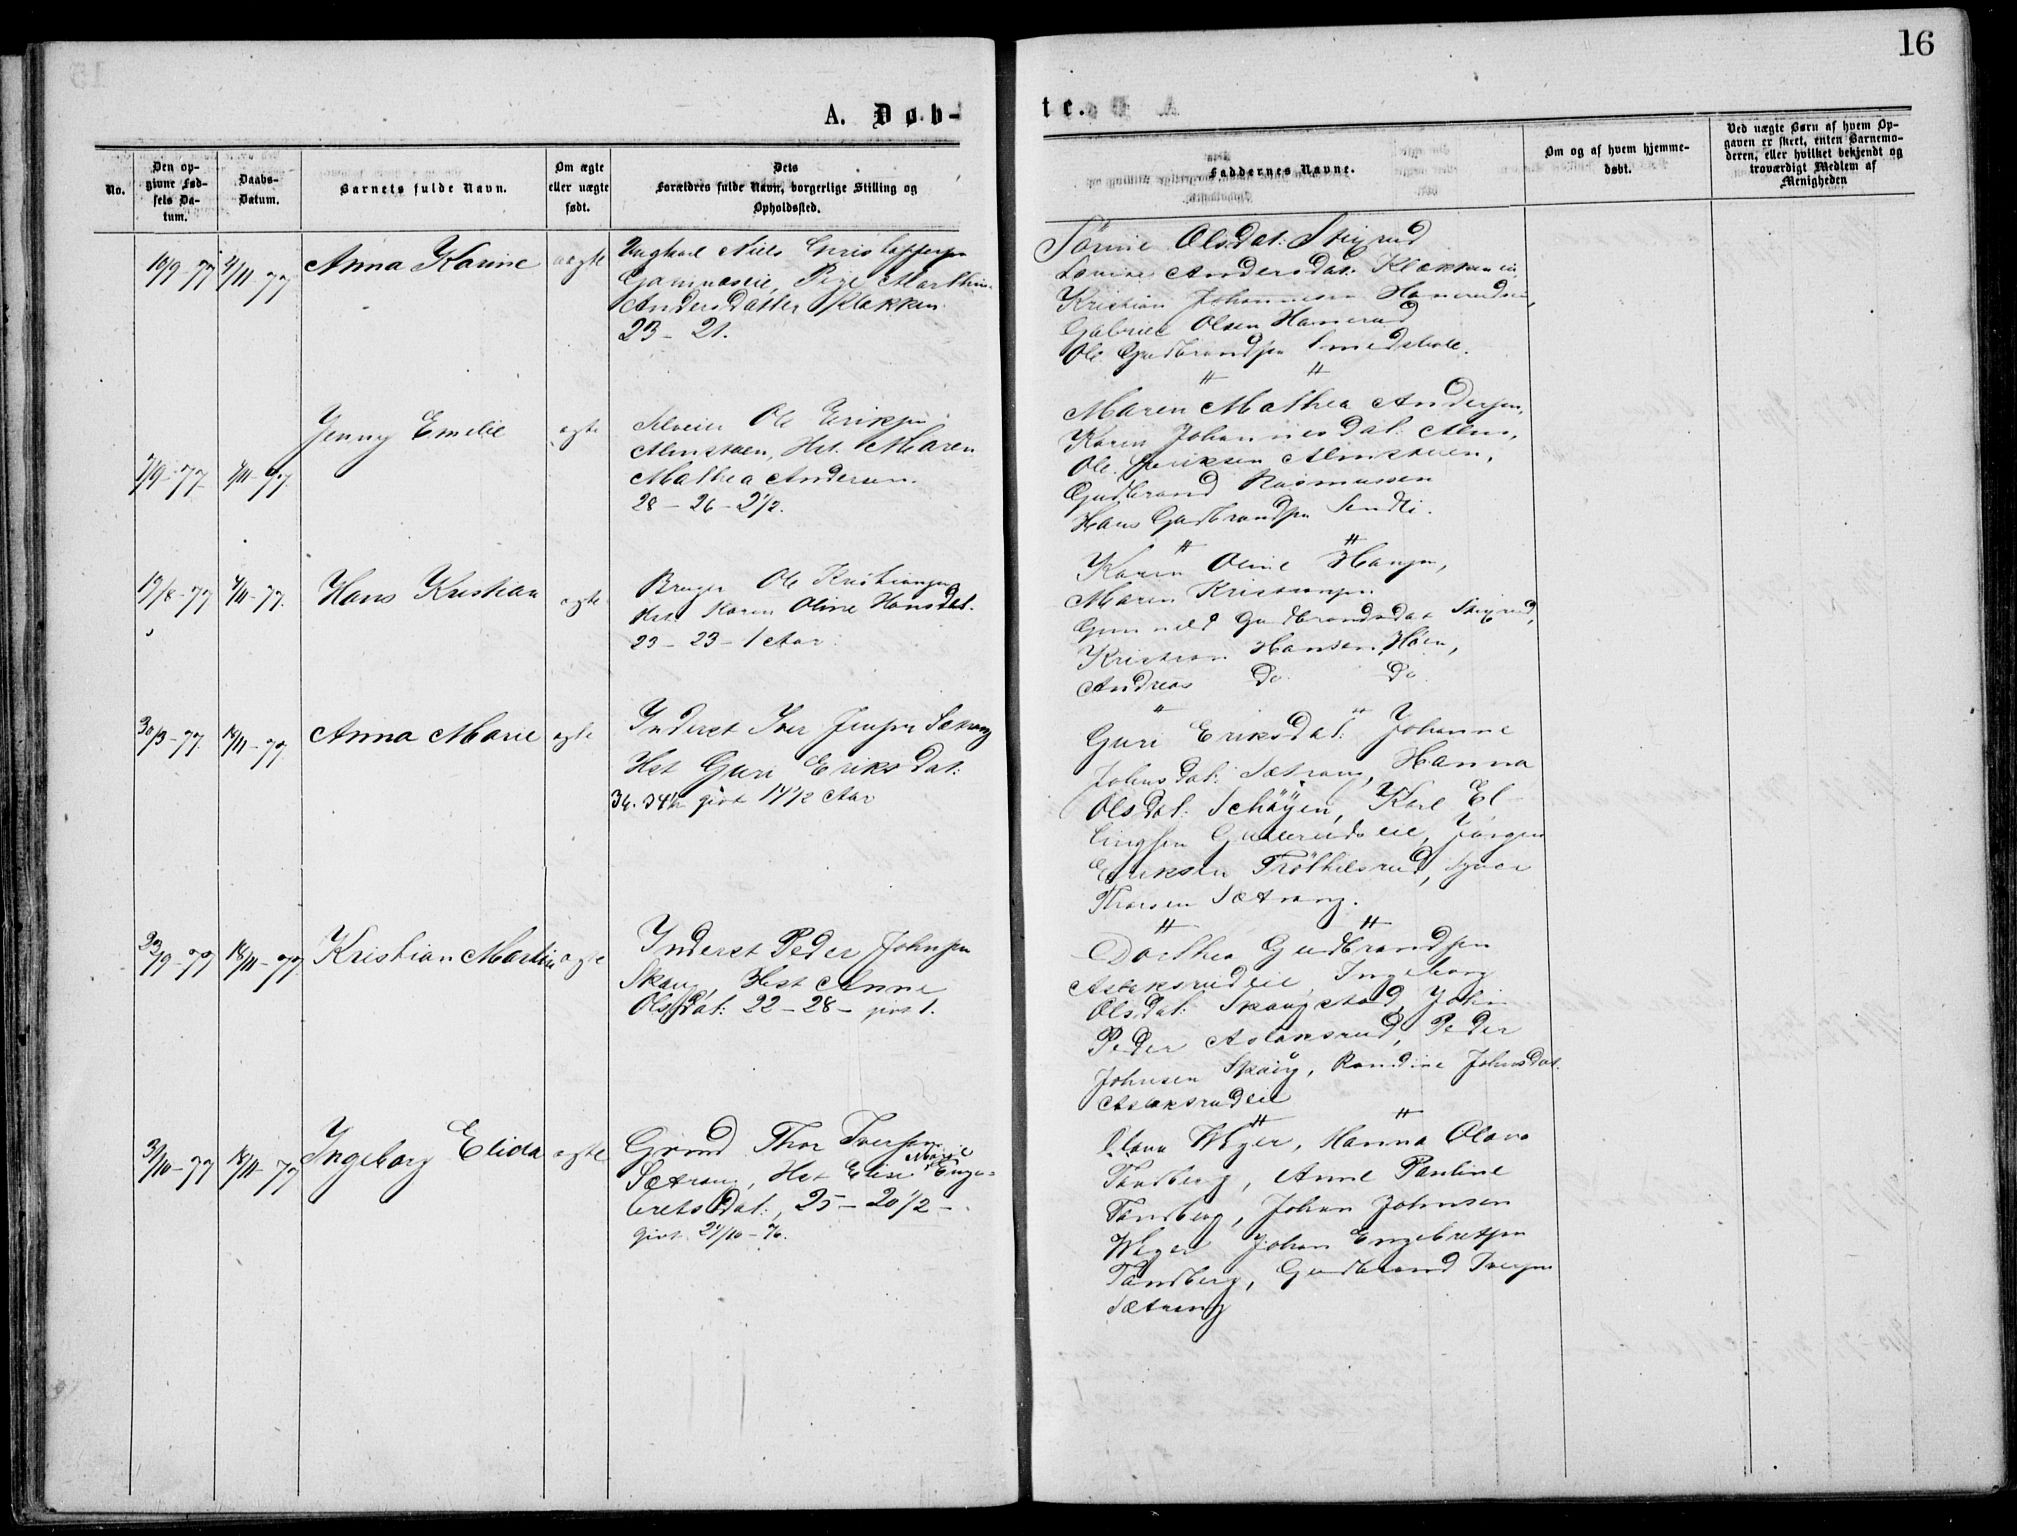 16
A. Døb-
te.
No.
Den op-
givne Fød-
sels Da-
tum.
Daabs-
Datum.
Barnets fulde Navn.
Om ægte
eller uægte
født.
Dets
Forældres fulde Navn, borgerlige Stilling og
Opholdssted.
Faddernes Navne.
Om og af hvem hjemme-
døbt.
Ved uægte Børn af hvem Op-
gaven er skeet, enten Barnemo-
deren, eller hvilket bekjendt og
troværdigt Medlem af
Menigheden
10/9-77 4/11-77 Anna Karine uægte Ungkarl Niels Christoffersen
Pige Marthin
Andersdatter Klækken
23 - 21.
Olsdat: Stigrud
Andersdat: Klækken
Kristian Johannesen
Gabriel Olsen Hamerud
Ole Gudbrandsen
7/9-77 4/11-77. Jenny Emelie ægte Ole Eriksen
Almstaen, Hst. Maren
Mathea Andersen.
28 - 26 - 2 1/2.
" "
Maren Mathea Andersen,
Karen Johannesdat: Alm,
Ole Eriksen Almstaen,
Gudbrand Rasmussen
Hans Gudbrandsen
19/8-77 4/11-77. Hans Kristian ægte Bruger Ole Kristiansen
Hst. Karen Oline Hansdat.
23 - 1 Aar
" "
Karen Oline Hansen,
Maren Kristiansen
Gunnild Gudbrandsdat Stigrud,
Kristian Hansen Haen,
Andreas Do Do
30/9-77. 18/11-77. Anna Marie ægte Inderst Iver Jensen Sætrang
Hst Guri Eriksdat:
36. 34 1/2 givt 14 1/2 Aar
" "
Guri Eriksdat: Johanne
Johnsdat: Sætrang, Hanna
Olsdat: Schøyen, Karl El-
lingsen Jørgen
Eriksen Syver
Thorsen Sætrang.
23/9-77 18/11-77 Kristian Martin ægte Inderst Peder Johnsen
Skaug, Hst Anne
Olsdat: 22 - 28 - givt 1.
" "
Dorthea Gudbrandsen
Aslaksrudeie, Ingeborg
Olsdat: Skaugstad, John
Peder Aslaksrud, Peder
Johnsen Skaug, Randine Johnsdat.
Aslaksrudeie
3/10-77 18/11-77 Ingeborg Elida ægte Grmd Thor Iversen
Sætrang, Hst Elise Marie Enge-
bretsdat:, 25 - 20 1/2 -
givt 27/10-76.
" "
Olava Wager, Hanna Olava
Tandberg, Anne Pauline
Tandberg, Johan Johnsen
Wager Johan Engebretsen
Tandberg, Gudbrand Iversen
Sætrang